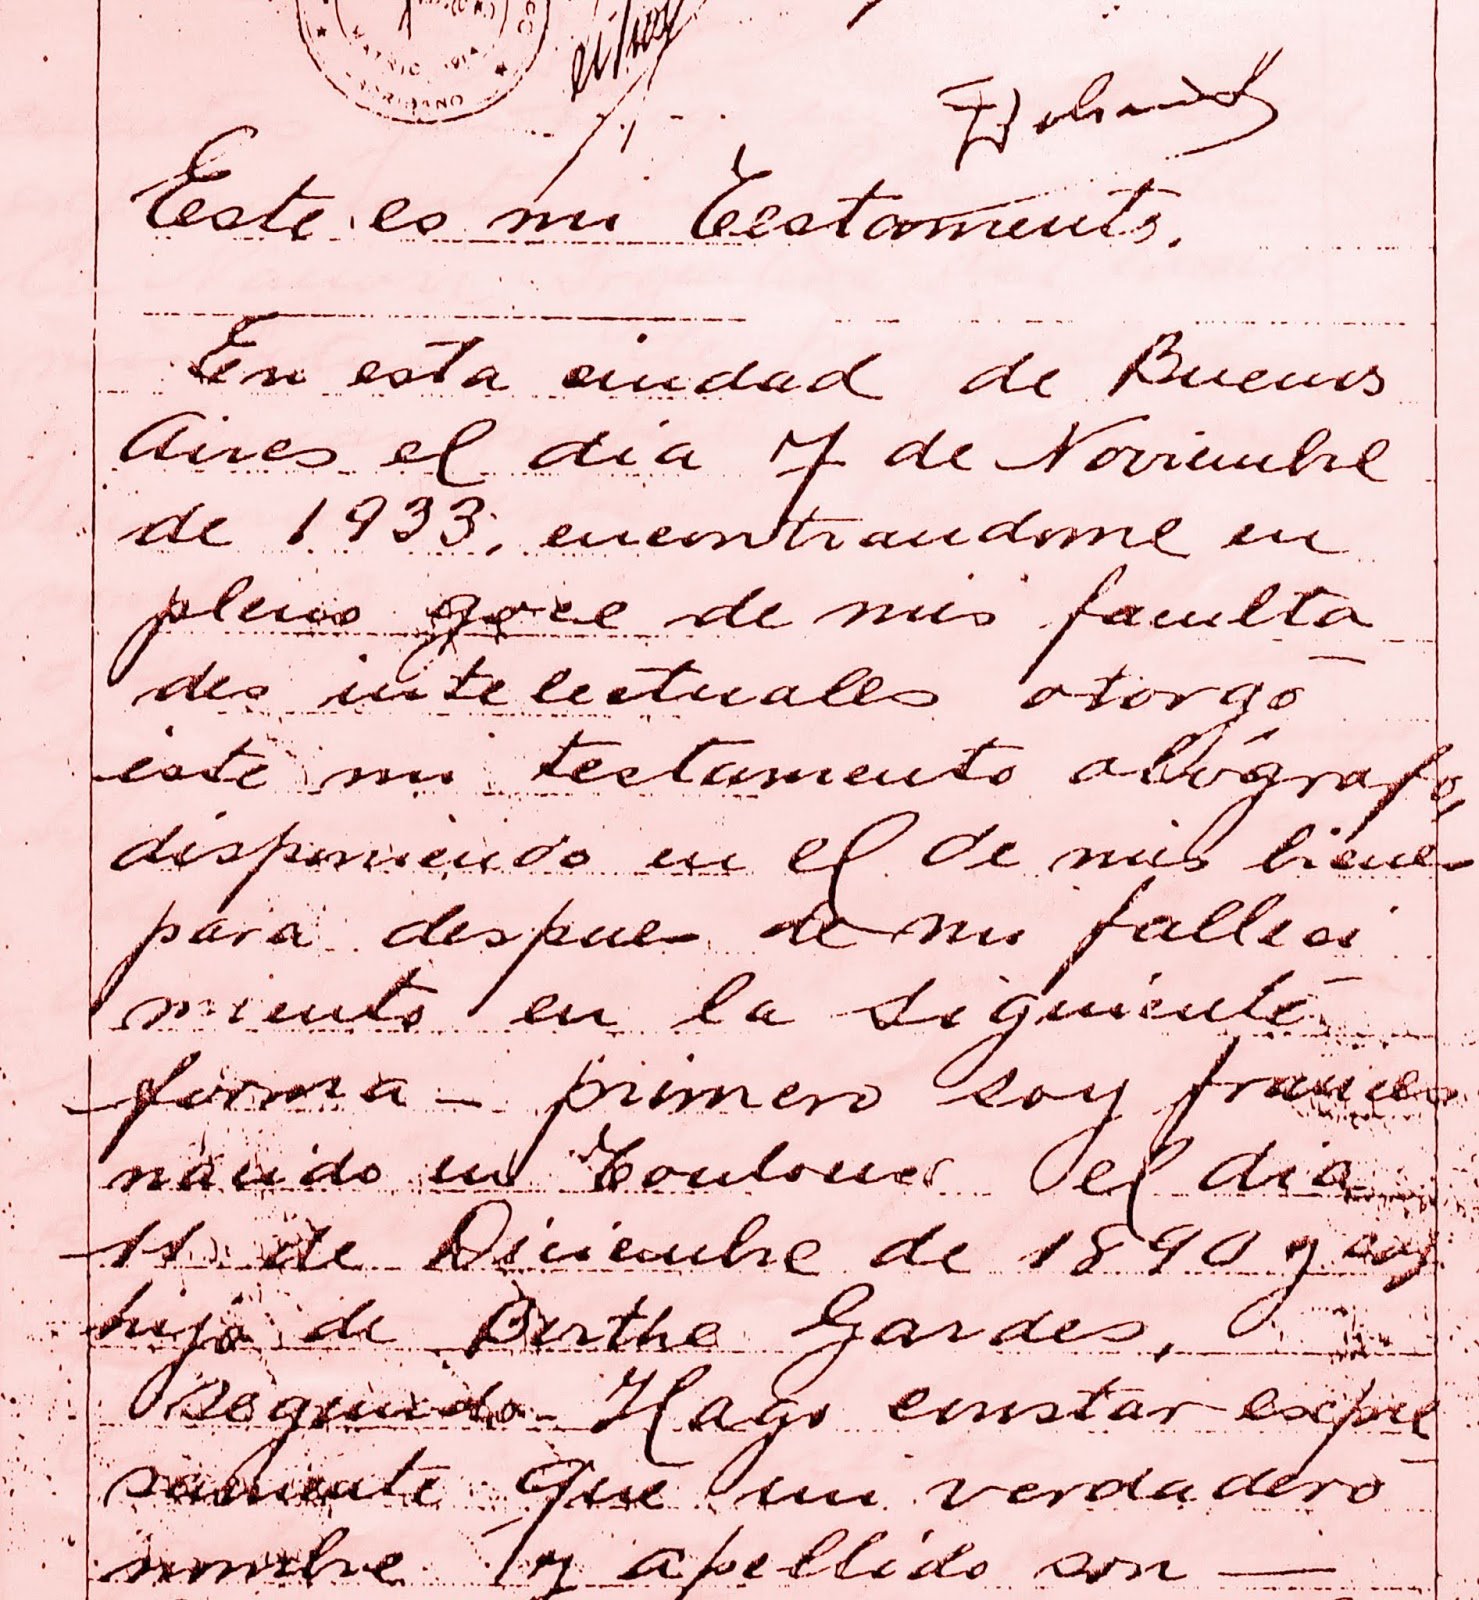 Este es mi Testamento.
En esta ciudad de Buenos
Aires el dia 7 de Noviembre
de 1933, encontrandome en
pleno goce de mis faculta
des intelectuales otorgo
este mi testamento ológrafo,
disponiendo en el de mis bienes
para despues de mi falleci
miento en la siguiente
forma - primero soy frances
nacido en Toulouse el dia
11 de Diciembre de 1890 y soy
hijo de Berthe Gardes,
Segundo - Hago constar expre
samente que mi verdadero
nombre y apellido son —